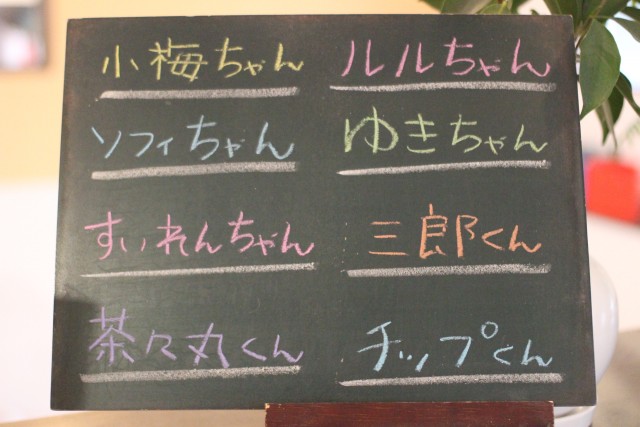 小梅ちゃん
ルルちゃん
ソフィちゃん
ゆきちゃん
すいれんちゃん
三郎くん
茶々丸くん
チップくん